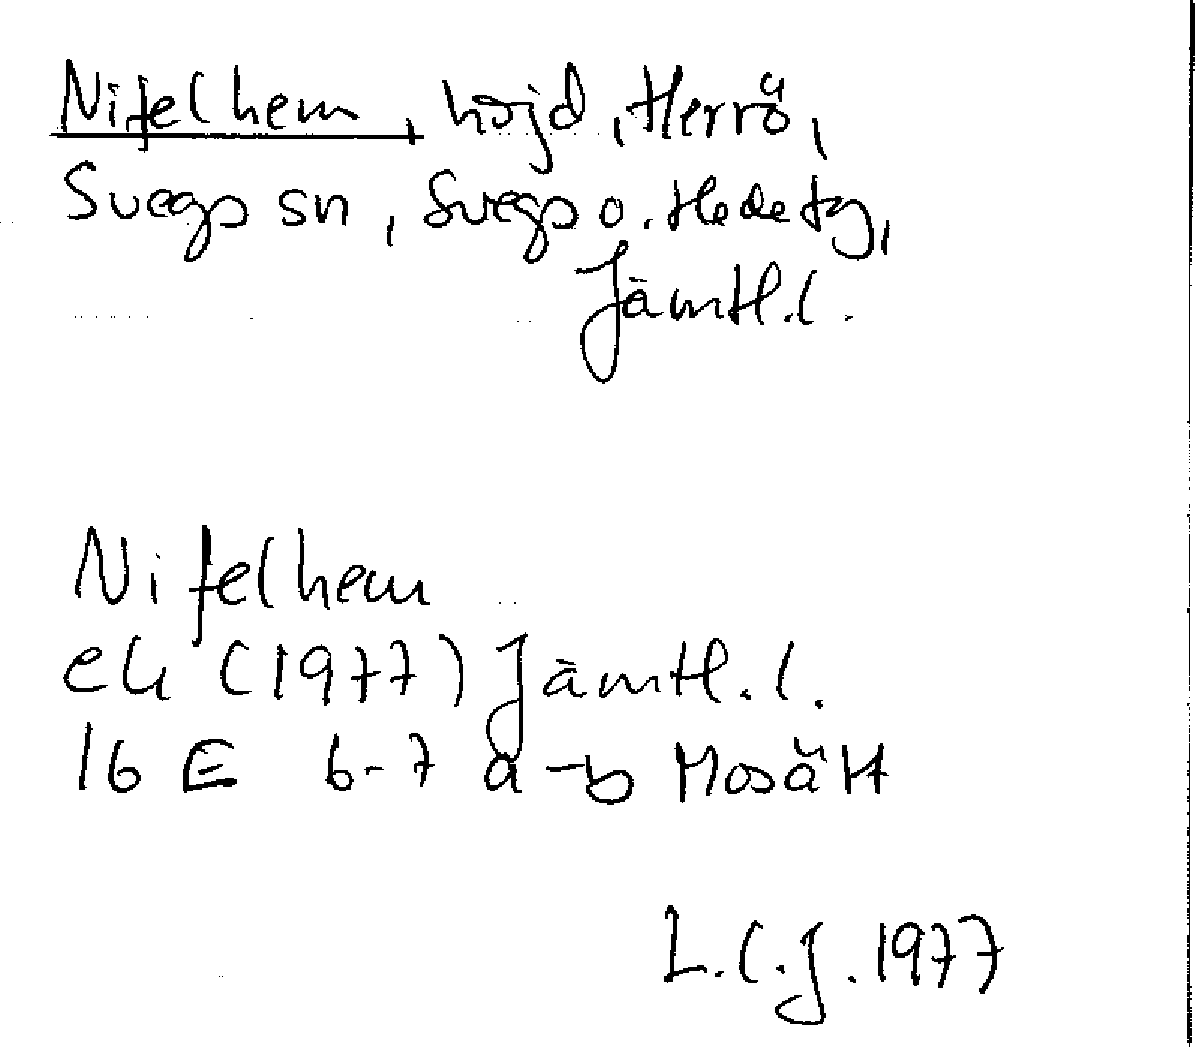 Nifelhem, höjd, Herrö,
Svegs sn, Svegs o. Hede tg,
Jämtl. l.
Nifelhem
ek (1977) Jämtl. l.
16 E 6-7 a-b Mosätt
L.C.J. 1977